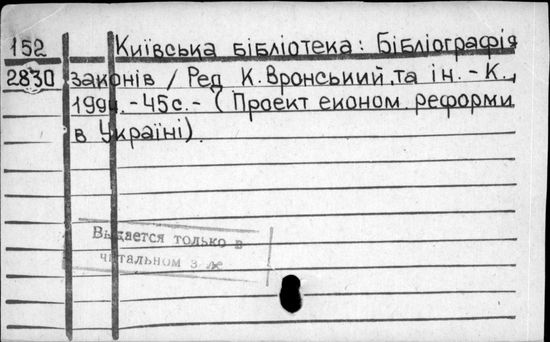 152 Київська бібліотека: Бібліографія
2830 законів / Ред. К. Вронський та ін. - К.,
1994. - 45 с. - (Проект економ. реформи
в Україні).
Выдается только в
читальном зале